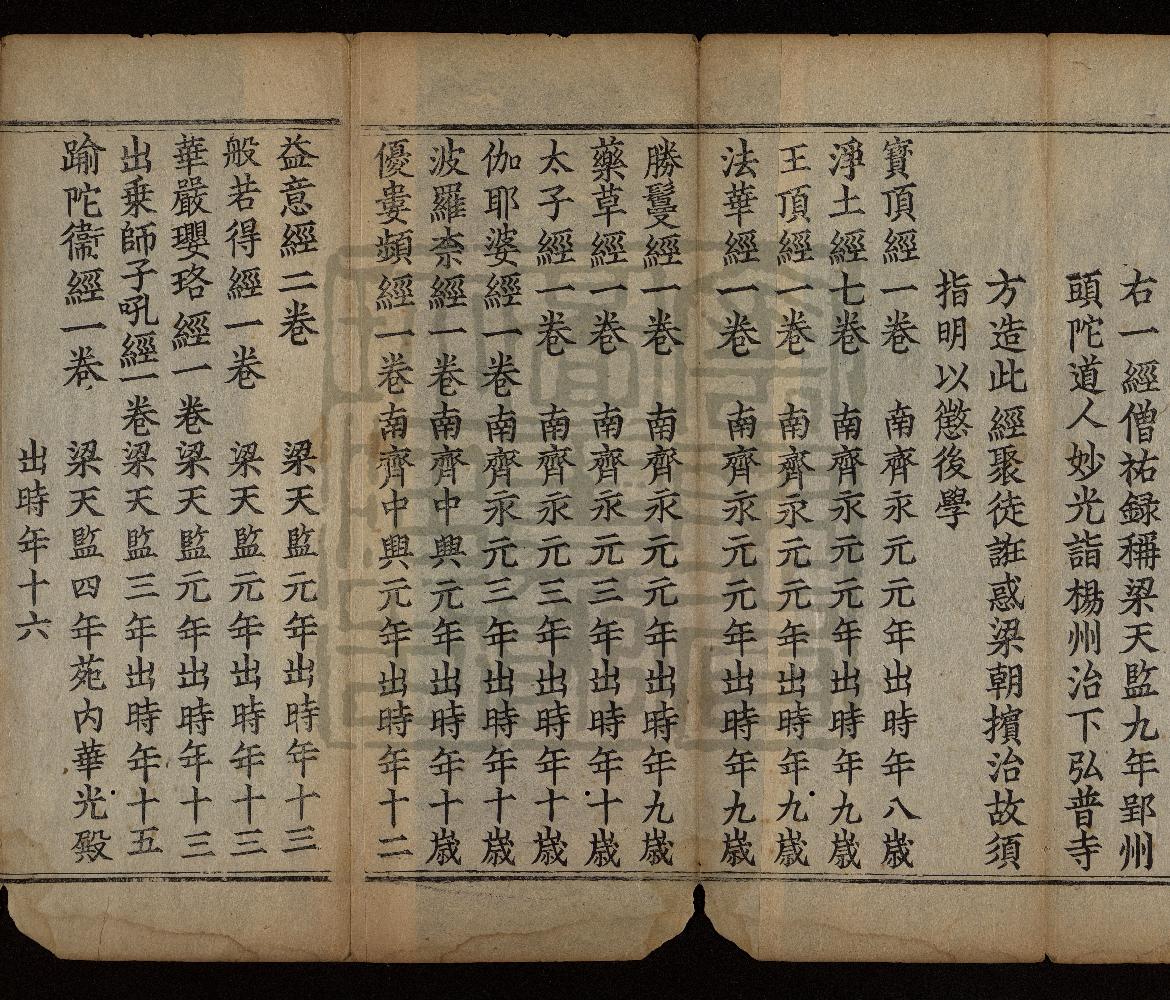 右一經僧祐録稱梁天監九年郢州
頭陀道人妙光詣楊州治下弘普寺
方造此經聚徒誑惑梁朝擯治故須
指明以懲後學
寳頂經一卷 南齊永元元年出時年八歲
淨土經七卷 南齊永元元年出時年九歲
王頂經一卷 南齊永元元年出時年九歲
法華經一卷 南齊永元元年出時年九歲
勝鬘經一卷 南齊永元元年出時年九歲
藥草經一卷 南齊永元三年出時年十歲
太子經一卷 南齊永元三年出時年十歲
伽耶婆經一卷南齊永元三年出時年十歲
波羅柰經一卷南齊中興元年出時年十歲
優婁頻經一卷南齊中興元年出時年十二
益意經二卷 梁天監元年出時年十三
般若得經一卷 梁天監元年出時年十三
華嚴瓔珞經一卷梁天監元年出時年十三
出乗師子吼經一卷梁天監三年出時年十五
踰陀衞經一卷 梁天監四年苑内華光殿
出時年十六